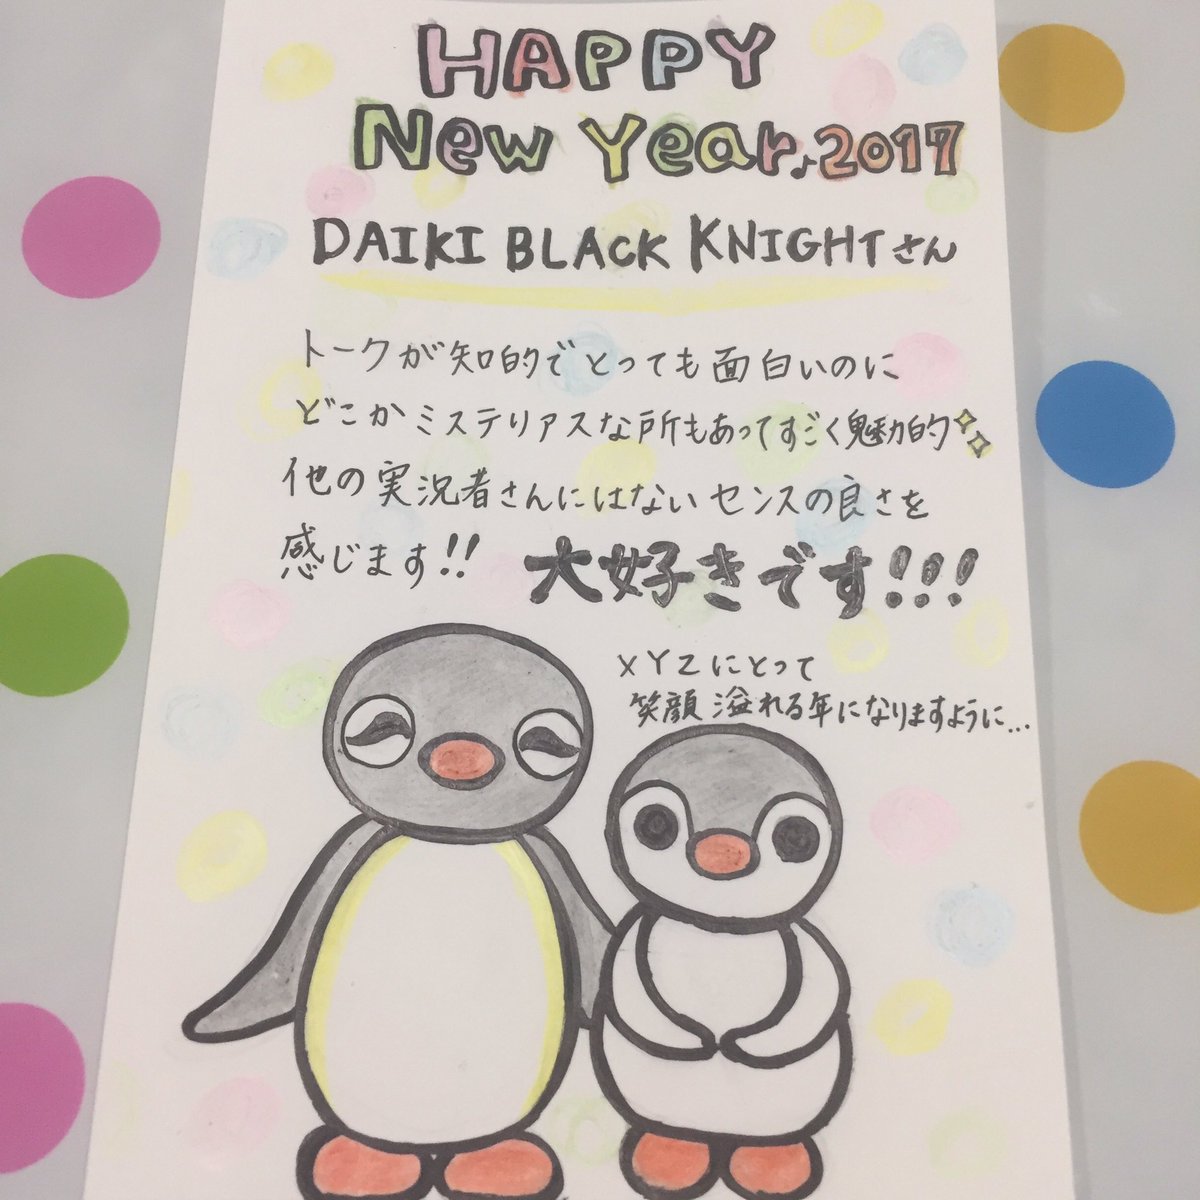 HAPPY
New Year♪2017
DAIKI BLACK KNIGHTさん
トークが知的でとっても面白いのに
どこかミステリアスな所もあってすごく魅力的
他の実況者さんにはないセンスの良さを
感じます!! 大好きです!!!
XYZにとって
笑顔溢れる年になりますように...